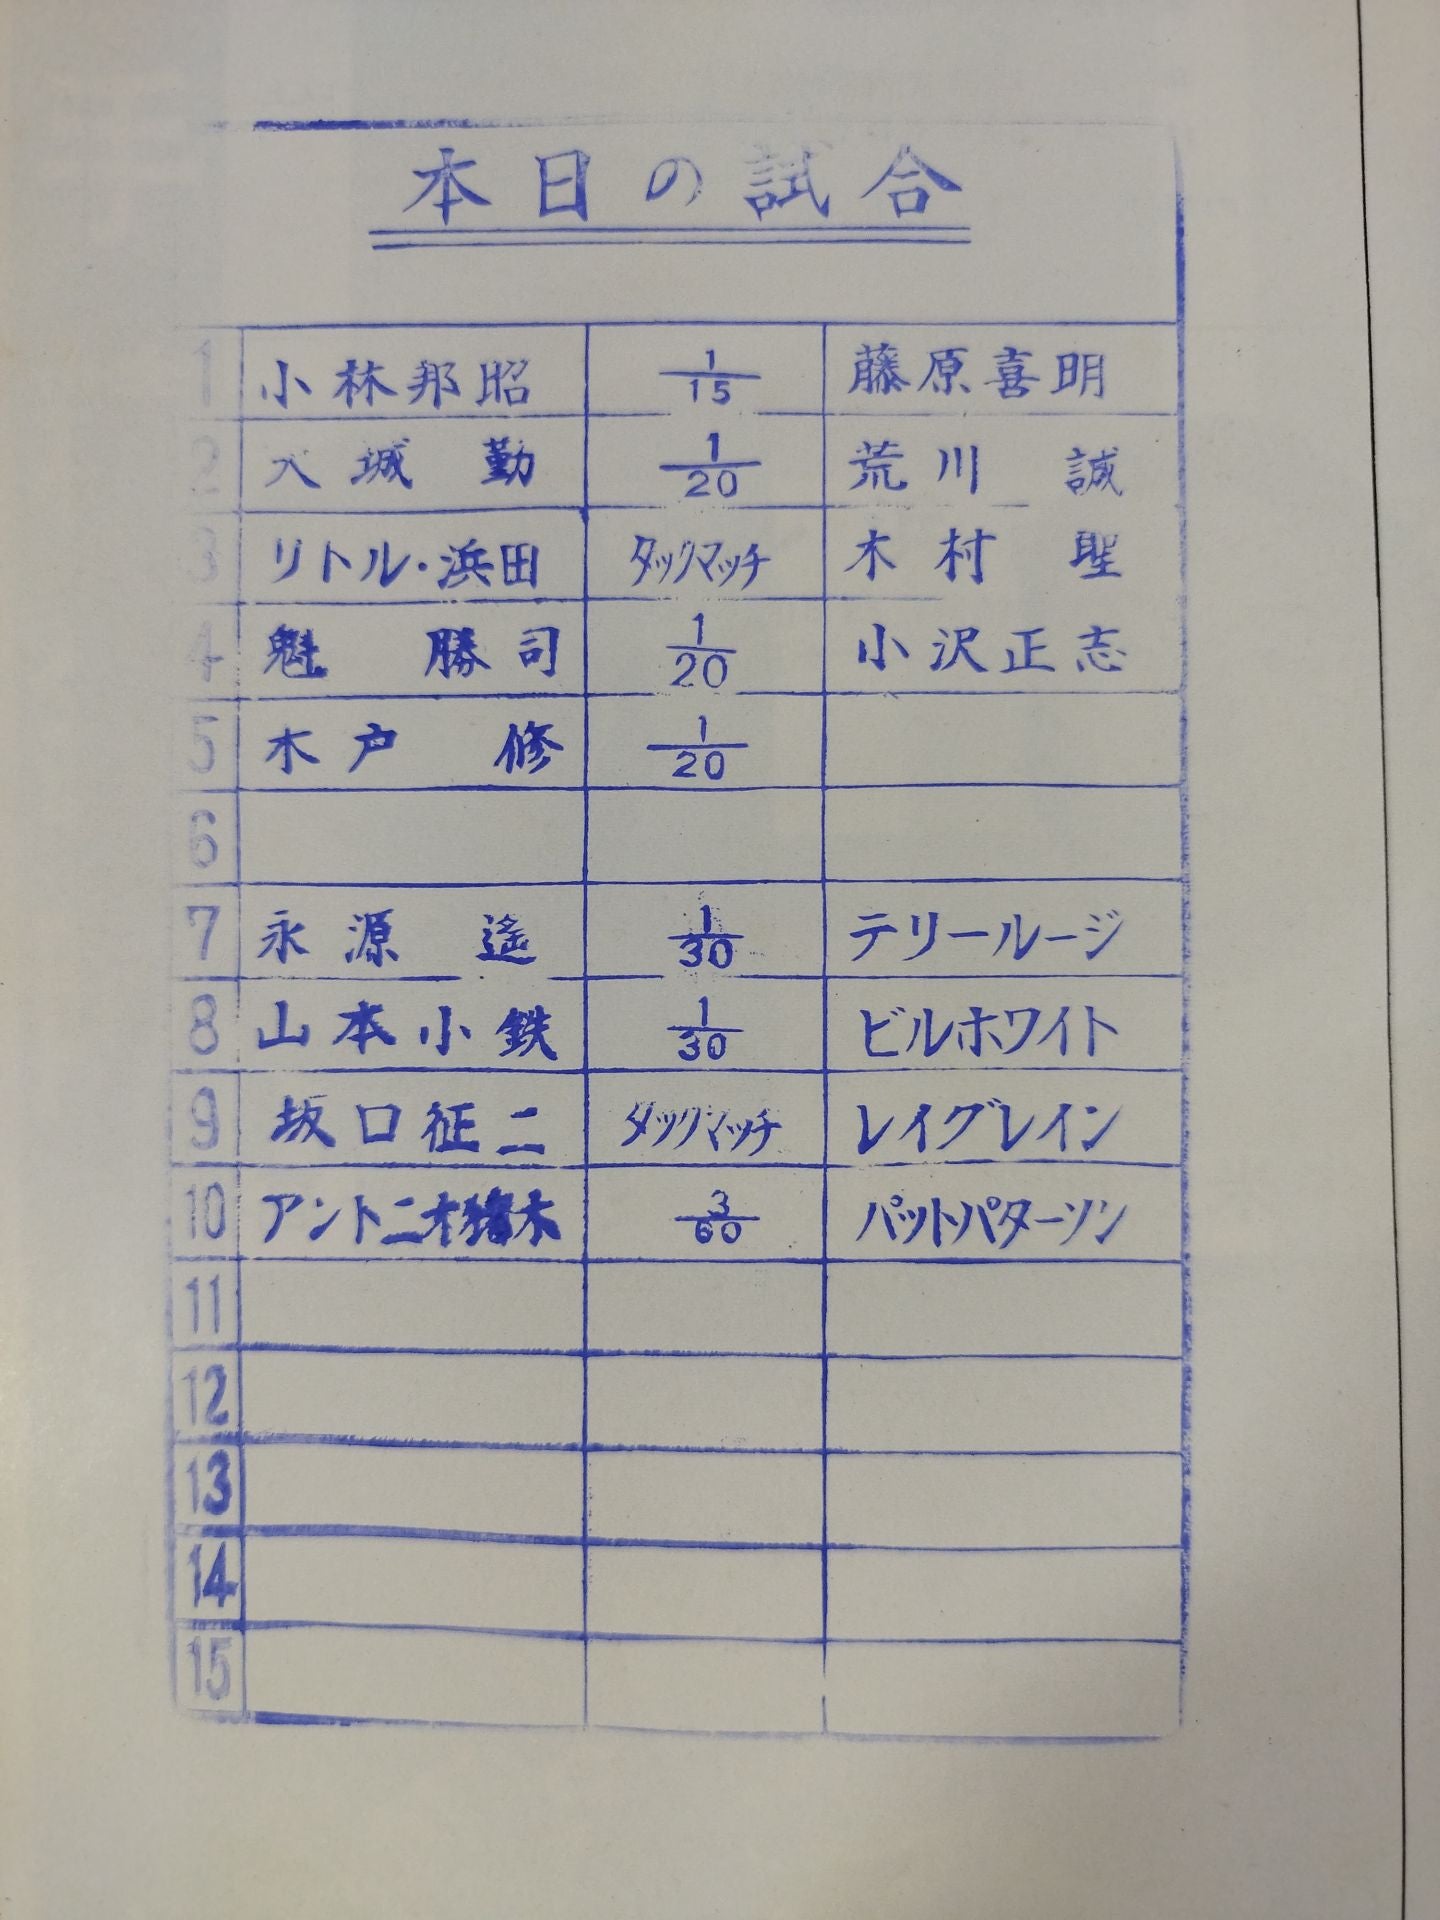 本日の試合
1 小林邦昭 1/15 藤原喜明
2 大城 勤 1/20 荒川 誠
3 リトル・浜田 タッグマッチ 木村 聖
4 魁 勝司 1/20 小沢正志
5 木戸 修 1/20
6
7 永源 遙 1/30 テリールージ
8 山本小鉄 1/30 ビルホワイト
9 坂口征二 タッグマッチ レイグレイン
10 アントニオ猪木 3/60 パットパターソン
11
12
13
14
15